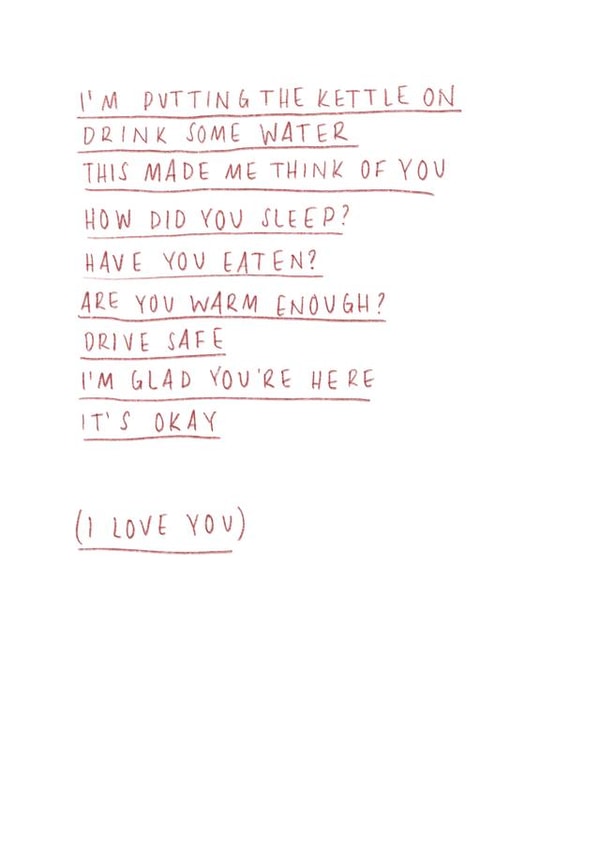 I'M PUTTING THE KETTLE ON
DRINK SOME WATER
THIS MADE ME THINK OF YOU
HOW DID YOU SLEEP?
HAVE YOU EATEN?
ARE YOU WARM ENOUGH?
DRIVE SAFE
I'M GLAD YOU'RE HERE
IT'S OKAY
(I LOVE YOU)